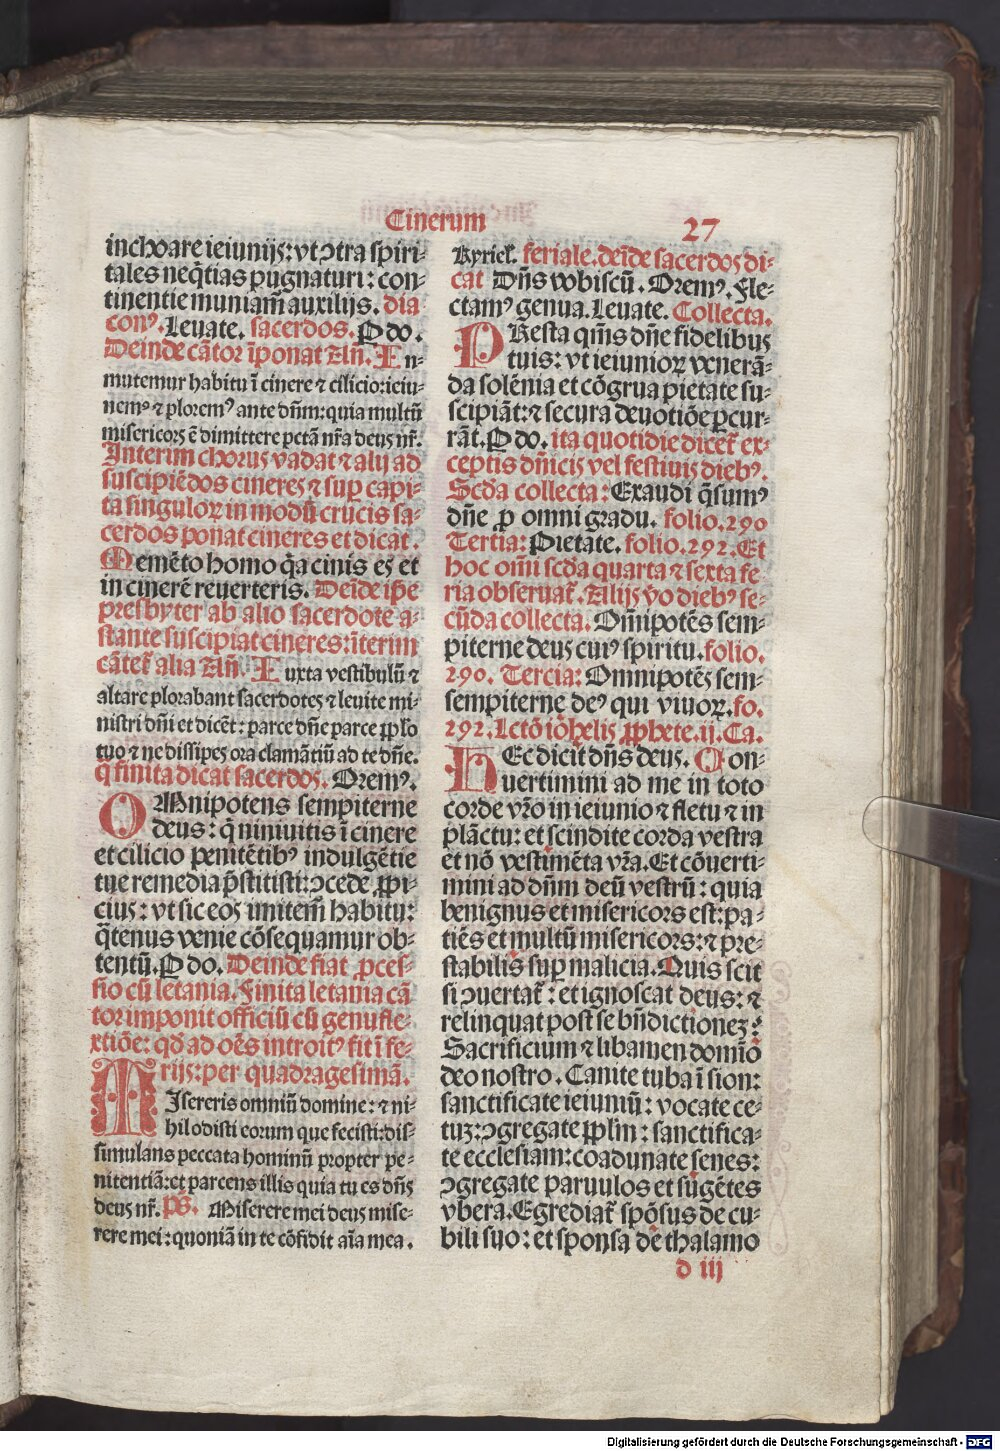 Cinerum
27
inchoare ieiunijs: vt ↄtra spiri-
tales neq̄tias pugnaturi: con-
tinentie muniam̄ auxilijs. dia
conꝰ. Leuate. sacerdos. P do.
Deinde cātor īponat Añ. In-
mutemur habitu ī cinere ⁊ cilicio: ieiu-
nemꝰ ⁊ ploremꝰ ante dñm: quia multū
misericors ē dimittere petā nr̄a deus nr̄.
Interim chorus vadat ⁊ alij ad
suscipiēdos cineres ⁊ sup capi-
ta singuloꝝ in modū crucis sa-
cerdos ponat cineres et dicat.
Memēto homo q̄a cinis es et
in cinerē reuerteris. Deīde ip̄e
presbyter ab alio sacerdote a-
stante suscipiat cineres: īterim
cātet̄ alia Añ. Iuxta vestibulū ⁊
altare plorabant sacerdotes ⁊ leuite mi-
nistri dñi et dicēt: parce dñe parce pplo
tuo ⁊ ne dissipes ora clamātiū ad te dñe.
q̄ finita dicat sacerdos. Oremꝰ.
OMnipotens sempiterne
deus: q̄ niniuitis ī cinere
et cilicio penitētibꝰ indulgētie
tue remedia p̄stitisti: ↄcede ꝓpi-
cius: vt sic eos imitem̄ habitu:
q̄tenus venie cōsequamur ob-
tentū. P do. Deinde fiat ꝓces-
sio cū letania. Finita letania cā
tor imponit officiū cū genufle-
xtiōe: qd̄ ad oēs introitꝰ fit ī fe-
rijs: per quadragesimā.
MIsereris omniū domine: ⁊ ni-
hil odisti eorum que fecisti: dis-
simulans peccata hominū propter pe-
nitentiā: et parcens illis quia tu es dñs
deus nr̄. ps̄. Miserere mei deus mise-
rere mei: quoniā in te cōfidit aīa mea.
Kyriel̄. feriale. deīde sacerdos di-
cat Dñs vobiscū. Oremꝰ. Fle-
ctamꝰ genua. Leuate. Collecta.
PResta qm̄s dñe fidelibus
tuis: vt ieiunioꝝ venerā-
da solēnia et cōgrua pietate su-
scipiāt: ⁊ secura deuotiōe ꝑcur-
rāt. P do. ita quotidie dicet̄ ex-
ceptis dñicis vel festiuis diebꝰ.
Scd̄a collecta: Exaudi q̄sumꝰ
dñe ꝓ omni gradu. folio. 290
Tertia: Pietate. folio. 292. Et
hoc om̄i scd̄a quarta ⁊ sexta fe-
ria obseruat̄. Alijs ṽo diebꝰ se-
cūda collecta. Om̄ipotēs sem-
piterne deus cuiꝰ spiritu. folio.
290. Tercia: Omnipotēs sem-
sempiterne deꝰ qui viuoꝝ. fo.
292. Lctō iohelis ꝓphete. ij. Ca.
HEc dicit dñs deus. Con-
uertimini ad me in toto
corde vr̄o in ieiunio ⁊ fletu ⁊ in
plāctu: et scindite corda vestra
et nō vestimēta vr̄a. Et cōuerti-
mini ad dñm deū vestrū: quia
benignus et misericors est: pa-
tiēs et multū misericors: ⁊ pre-
stabilis sup malicia. Quis scit
si ↄuertat̄: et ignoscat deus: ⁊
relinquat post se bñdictionez?
Sacrificium ⁊ libamen domīo
deo nostro. Canite tuba ī sion:
sanctificate ieiuniū: vocate ce-
tuz: ↄgregate pplm̄: sanctifica-
te ecclesiam: coadunate senes:
ↄgregate paruulos et sugētes
vbera. Egrediat̄ spōsus de cu-
bili suo: et sponsa de thalamo
d iij
Digitalisierung gefördert durch die Deutsche Forschungsgemeinschaft - DFG